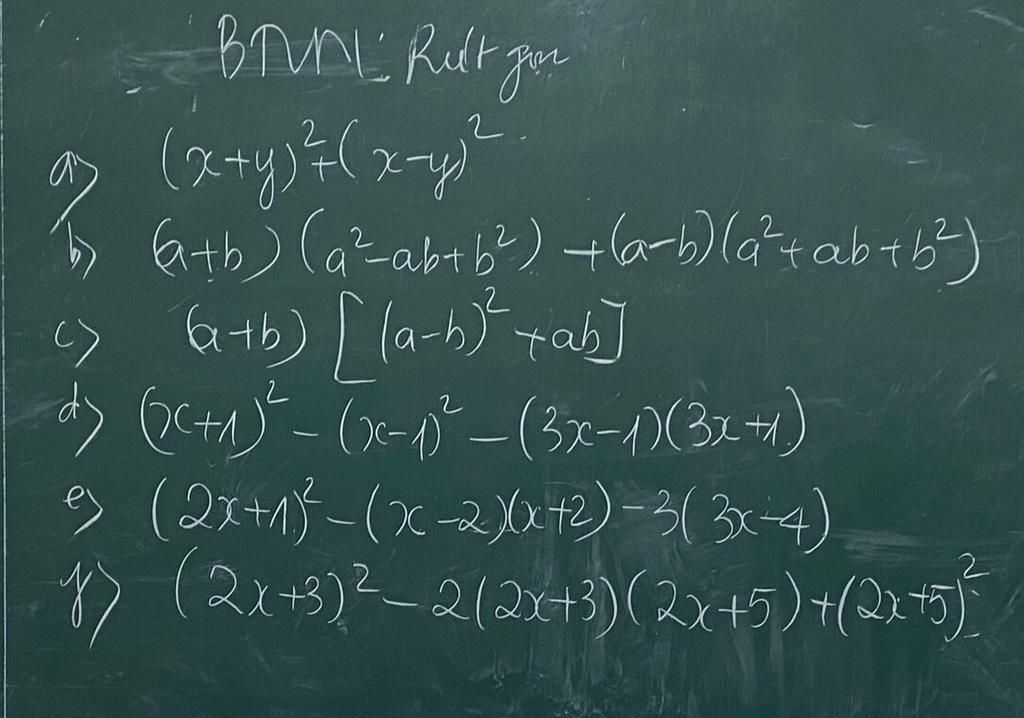 BTVN: Rút gọn
a) (x+y)²+(x-y)²
b) (a+b)(a²-ab+b²) +(a-b)(a²+ab+b²)
c) (a+b)[(a-b)²+ab]
d) (x+1)² - (x-1)² - (3x-1)(3x+1)
e) (2x+1)² - (x-2)(x+2) - 3(3x-4)
f) (2x+3)² - 2(2x+3)(2x+5) + (2x+5)²